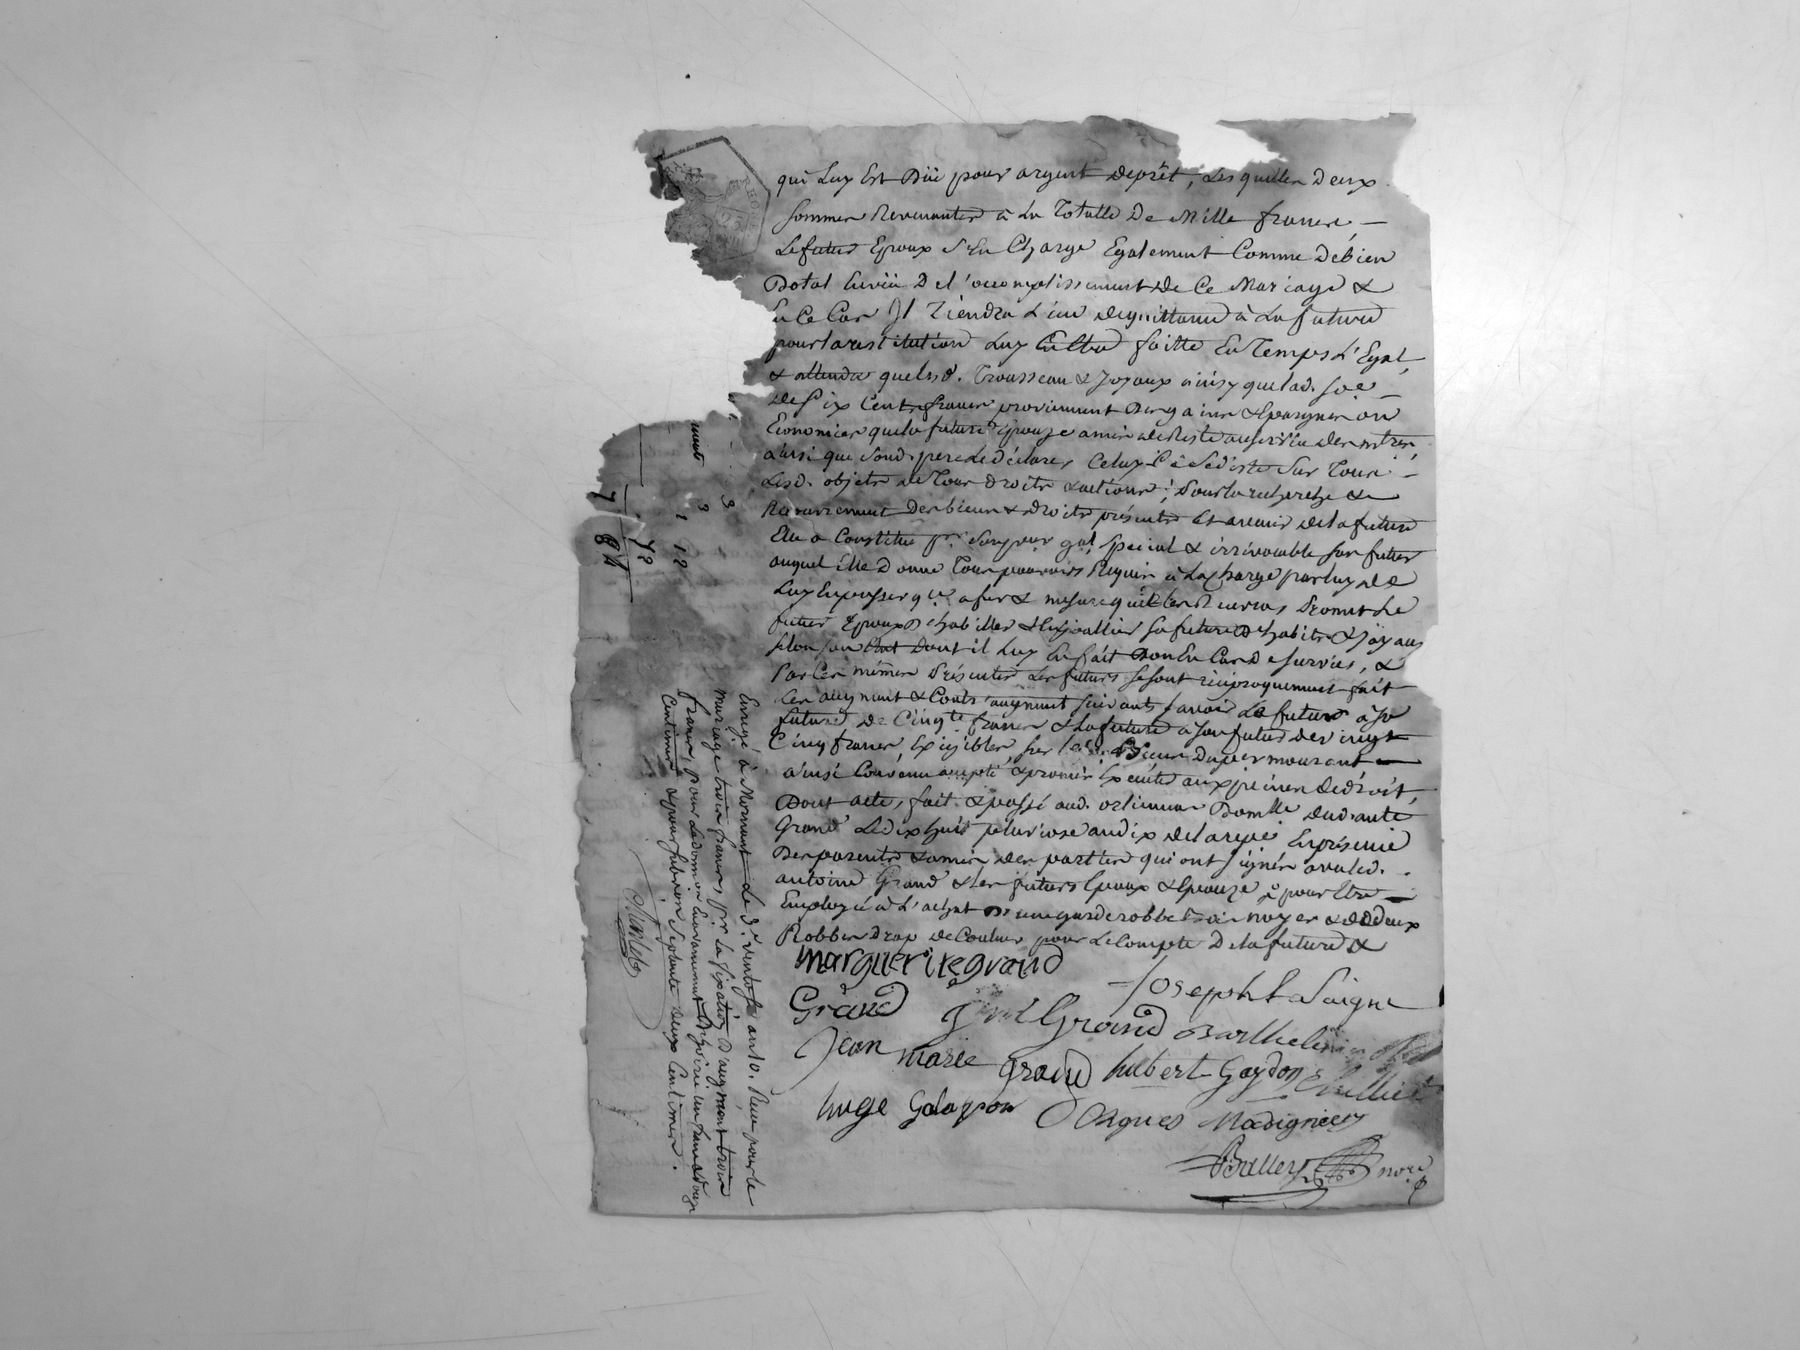 qui luy Est Düe pour argent deprêt, Lesquelles deux
sommes Revenantes à la Totalle De Mille francs,
Le futur Epoux s'En Charge Egalement Comme de bien
Dotal Envüe De l'accomplissement de Ce Mariage &
En Ce Cas Il Tiendra lieu de quittance à La future
pour la restitution luy En Etre faitte En Temps L'Egal,
& attendu que lesd. Trousseau & Joyaux ainsy que lad. so.e
de six Cents francs proviennent Des gains & Epargnes ou
Economies que la future Epouze a mis de Reste au service des mtres,
ainsi que sond. pere Le déclare, Celuy-Cÿ Se désiste Sur Tous
Lesd. objets de Tous droits & actions; Pour la recherche &
Recouvrement Des biens & droits présents Et avenir de la future
Elle a Constitué pr. son procr. gal. spécial & irrévocable son futur
auquel Elle Donne Tous pouvoirs Requis à La Charge par luy de
Luy En passer qce. a fur & mesure qu'il les Recevra, Promet Le
futur Epoux D'habiller & Enjoallier sa future d'habits & Joÿaux
selon son Etat Dont il luy En fait Don En Cas De survie, &
Par Ces mêmes Présentes Les futurs se sont réciproquement fait
les augment & Contr'augment suivants savoir Le futur à sa
future de Cinqte. francs & La future à son futur de vingt
Cinq francs, Exigibles sur les Biens Du per mourant
ainsi Convenu accepté & promis Exécuter aux peines de droit,
Dont acte, fait & passé aud. Domlle dud. ante
Grand Le dix huit pluviose an dix de la repe. En présence
Des parents & amis des parties qui ont signés avec led.
antoine Grand & les futurs Epoux & Epouze, & pour Etre
Employé à l'achat D'une garderobbe Bois noyer & de Deux
Robbes Drap de Couleur pour Le Compte De la future &
Marguerite grand
Joseph La Saigne
Grand
Grand
Barthelemi
Jean marie grand
hubert Gaydon
huge Galapon
Jaques Madignier
Balley nore
Enregé. à Mornant Le 3e. Ventose an 10. Reçu pour le
mariage trois francs, pr. la fixation d'augment trois
francs, pour La donnon. En avancement d'hoirie un franc douze
Centimes & pour subvion. soixante deux Centimes.
ment
3
3
1 12
72
7 84
RHONE
25